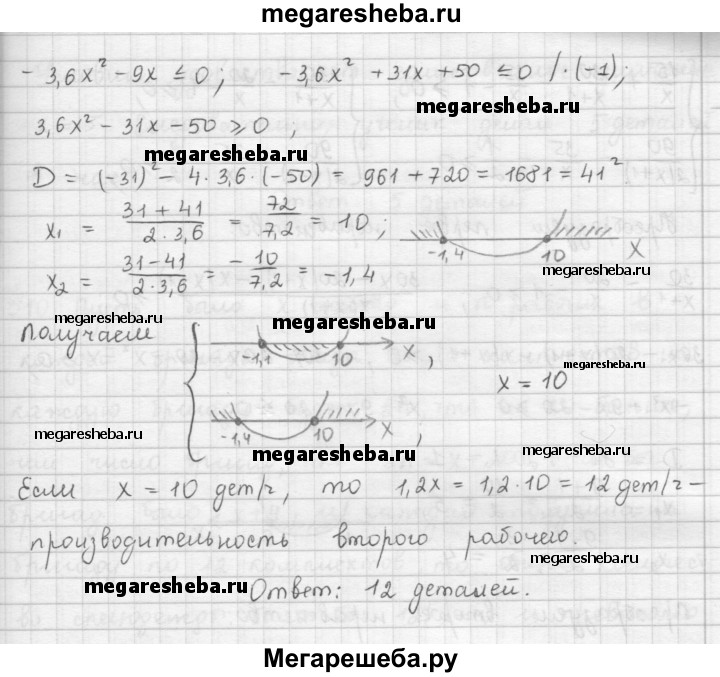 megaresheba.ru
- 3,6x² - 9x ≤ 0; - 3,6x² + 31x + 50 ≤ 0 / · (-1);
megaresheba.ru
3,6x² - 31x - 50 ≥ 0 ,
megaresheba.ru
D = (-31)² - 4 · 3,6 · (-50) = 961 + 720 = 1681 = 41².
x₁ = (31 + 41)/(2 · 3,6) = 72/7,2 = 10;
-1,4 10 x
x₂ = (31 - 41)/(2 · 3,6) = -10/7,2 = -1,4
Получаем
megaresheba.ru
-1,1 10 x ,
x = 10
megaresheba.ru
-1,4 10 x ;
megaresheba.ru
megaresheba.ru
Если x = 10 дет/г, то 1,2x = 1,2 · 10 = 12 дет/г –
производительность второго рабочего.
megaresheba.ru
megaresheba.ru
Ответ: 12 деталей.
Мегарешеба.ру